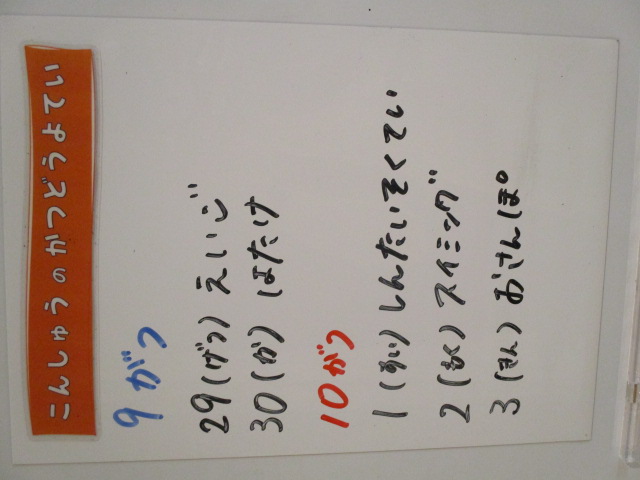 こんしゅうのかつどうよてい
9がつ
29(げつ)えいご
30(か)はたけ
10がつ
1(すい)しんたいそくてい
2(もく)スイミング
3(きん)おさんぽ